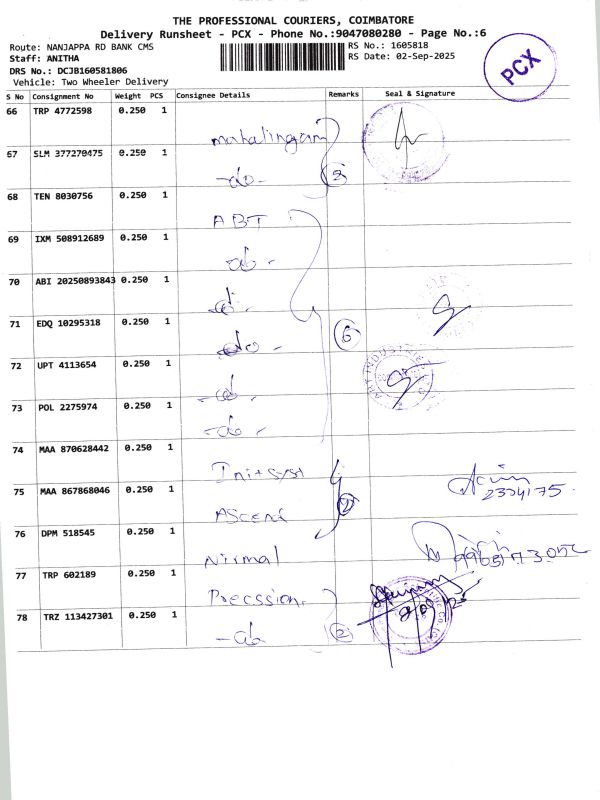 THE PROFESSIONAL COURIERS, COIMBATORE
Delivery Runsheet - PCX - Phone No.:9047080280 - Page No.:6
Route: NANJAPPA RD BANK CMS
RS No.: 1605818
Staff: ANITHA
RS Date: 02-Sep-2025
DRS No.: DCJB160581806
Vehicle: Two Wheeler Delivery
PCX
S No Consignment No Weight PCS Consignee Details Remarks Seal & Signature
66 TRP 4772598 0.250 1
mahalingam
67 SLM 377270475 0.250 1
-do- 2
68 TEN 8030756 0.250 1
ABT
69 IXM 508912689 0.250 1
-do-
70 ABI 20250893843 0.250 1
-do-
71 EDQ 10295318 0.250 1
-do- 6
72 UPT 4113654 0.250 1
-do-
73 POL 2275974 0.250 1
-do-
74 MAA 870628442 0.250 1
75 MAA 867868046 0.250 1
Ascent
2334175
76 DPM 518545 0.250 1
Nirmal
77 TRP 602189 0.250 1
Precssion
78 TRZ 113427301 0.250 1
-do- 2